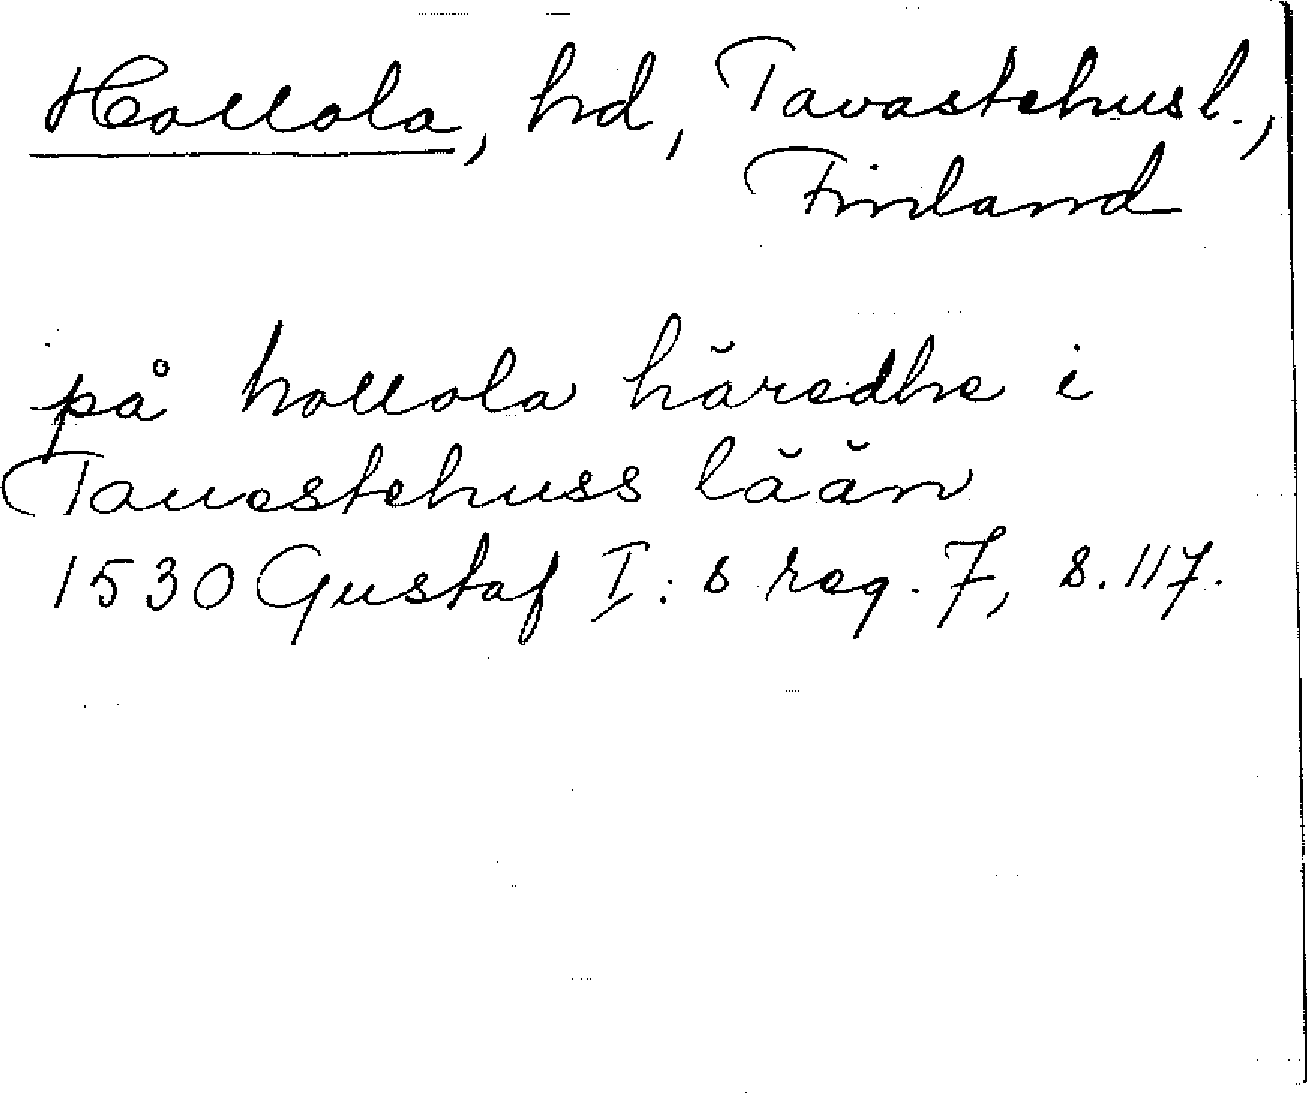 Hollola, hd, Tavastehusl.,
Finland
på hollola häredhe i
Tauestehuss lään
1530 Gustaf I:s reg. 7, s. 117.